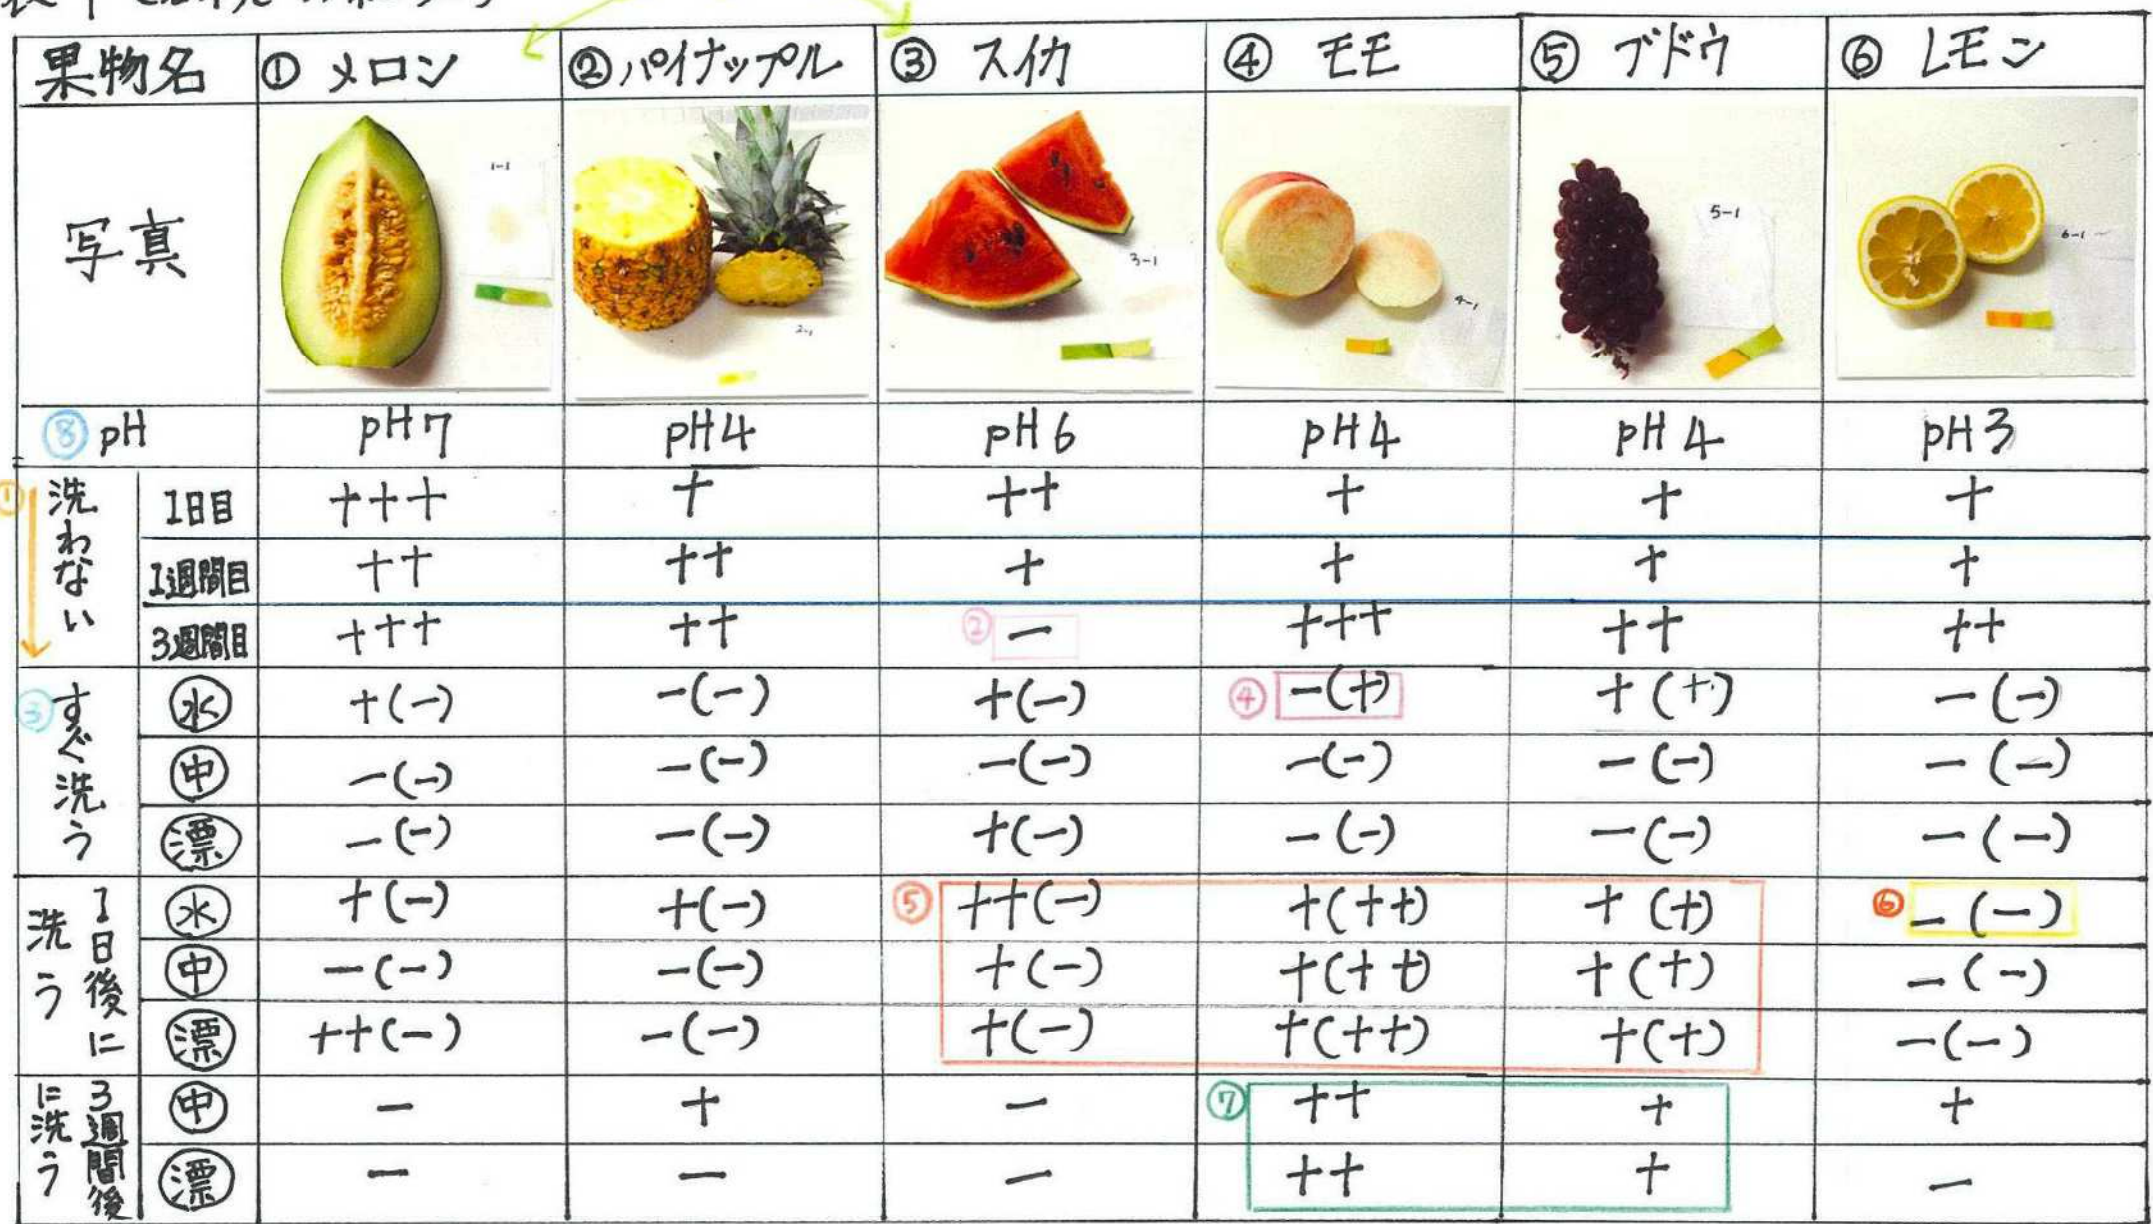 果物名 ① メロン ② パイナップル ③ スイカ ④ モモ ⑤ ブドウ ⑥ レモン
写真
1-1
2-1
3-1
4-1
5-1
6-1
⑧ pH pH7 pH4 pH6 pH4 pH4 pH3
① 洗わない
1日目 +++ + ++ + + +
1週間目 ++ ++ + + + +
3週間目 +++ ++ ② − +++ ++ ++
③ すぐ洗う
水 +(−) −(−) +(−) ④ −(+) +(+) −(−)
中 −(−) −(−) −(−) −(−) −(−) −(−)
漂 −(−) −(−) +(−) −(−) −(−) −(−)
1日後に洗う
水 +(−) +(−) ⑤ ++(−) +(++) +(+) ⑥ −(−)
中 −(−) −(−) +(−) +(++) +(+) −(−)
漂 ++(−) −(−) +(−) +(++) +(+) −(−)
3週間後に洗う
中 − + − ⑦ ++ + +
漂 − − − ++ + −